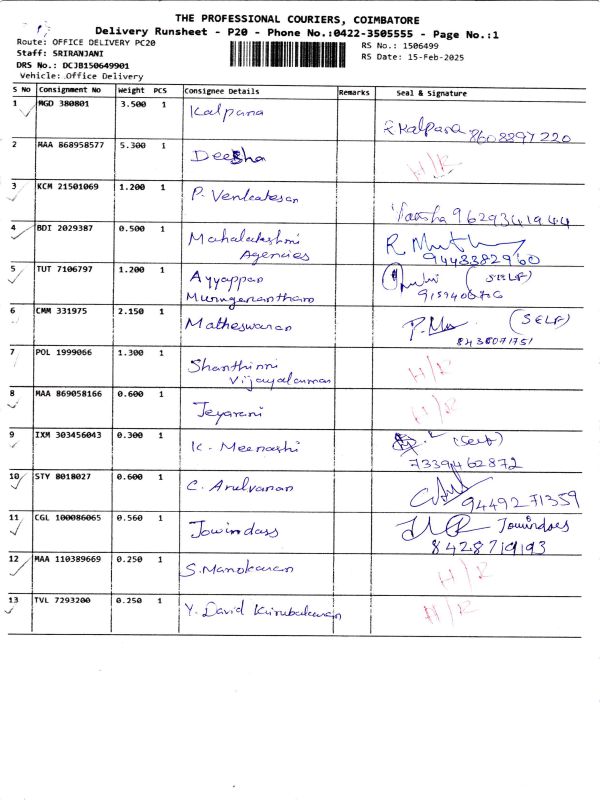 THE PROFESSIONAL COURIERS, COIMBATORE
Delivery Runsheet - P20 - Phone No.:0422-3505555 - Page No.:1
Route: OFFICE DELIVERY PC20
RS No.: 1506499
Staff: SRIRANJANI
RS Date: 15-Feb-2025
DRS No.: DCJB150649901
Vehicle: Office Delivery
S No Consignment No Weight PCS Consignee Details Remarks Seal & Signature
1 MGD 380801 3.500 1 Kalpana R Kalpana 8608897220
2 MAA 868958577 5.300 1 Deesha H/R
3 KCM 21501069 1.200 1 P. Venkatesan 9629341944
4 BDI 2029387 0.500 1 Mahalakshmi
Agencies
5 TUT 7106797 1.200 1 Ayyappan (SELF)
6 CMM 331975 2.150 1 Matheswaran (SELF)
7 POL 1999066 1.300 1 H/R
8 MAA 869058166 0.600 1 Jeyarani H/R
9 IXM 303456043 0.300 1 K. Meenashi (Self)
7339462872
10 STY 8018027 0.600 1 C. Arulvanan
9449271359
11 CGL 100086065 0.560 1 Jowindass Jowindoes
8428719193
12 MAA 110389669 0.250 1 S. Manokaran H/R
13 TVL 7293200 0.250 1 Y. David H/R